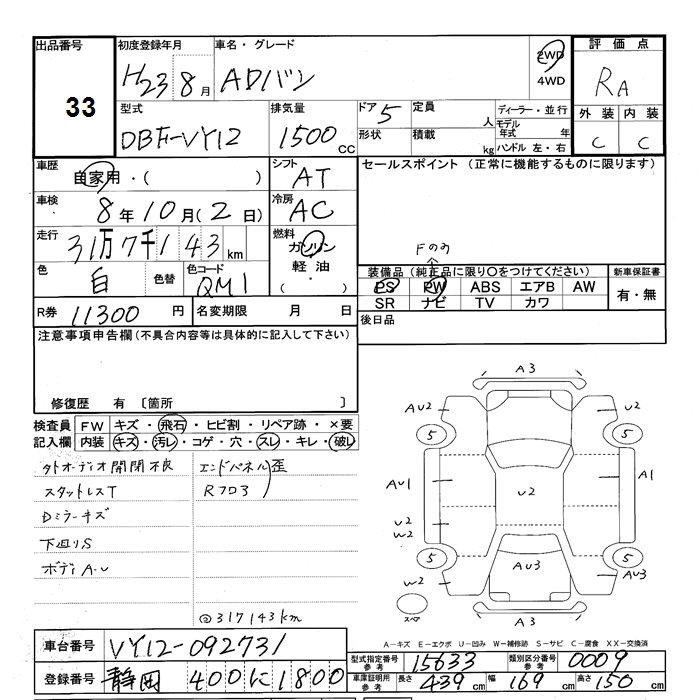 出品番号
33
初度登録年月
H23 8月
車名・グレード
ADバン
2WD
4WD
評価点
RA
型式
DBF-VY12
排気量
1500 CC
ドア 5
形状
定員 人
積載 kg
ディーラー・並行
モデル年式 年
ハンドル 左・右
外装 内装
C C
車歴
自家用・( )
シフト
AT
セールスポイント (正常に機能するものに限ります)
車検
8年10月(2日)
冷房
AC
走行
31万7千143 km
燃料
ガソリン
軽油
( )
色
白
色替
色コード
QM1
Fのみ
装備品 (純正品に限り○をつけてください)
PS PW ABS エアB AW
SR ナビ TV カワ
新車保証書
有・無
R券 11300 円
名変期限 月 日
後日品
注意事項申告欄(不具合内容等は具体的に記入して下さい)
修復歴 有 〔箇所 〕
検査員記入欄
FW キズ・飛石・ヒビ割・リペア跡・×要
内装 キズ・汚レ・コゲ・穴・スレ・キレ・破レ
外オーディオ開閉不良
エンドパネル歪
スタットレスT
Rフロア
Dミラーキズ
下廻りS
ボディA-U
@317143km
A3
AU2
U2
5
5
AU1
A1
U2
U2
W2
5
5
W2
AU3
AU3
スペア
A3
A-キズ E-エクボ U-凹み W-補修跡 S-サビ C-腐食 XX-交換済
車台番号 VY12-092731
登録番号 静岡 400 に 1800
型式指定番号 参考 15633
類別区分番号 参考 0009
車庫証明用 参考 長さ 439cm 幅 169cm 高さ 150cm